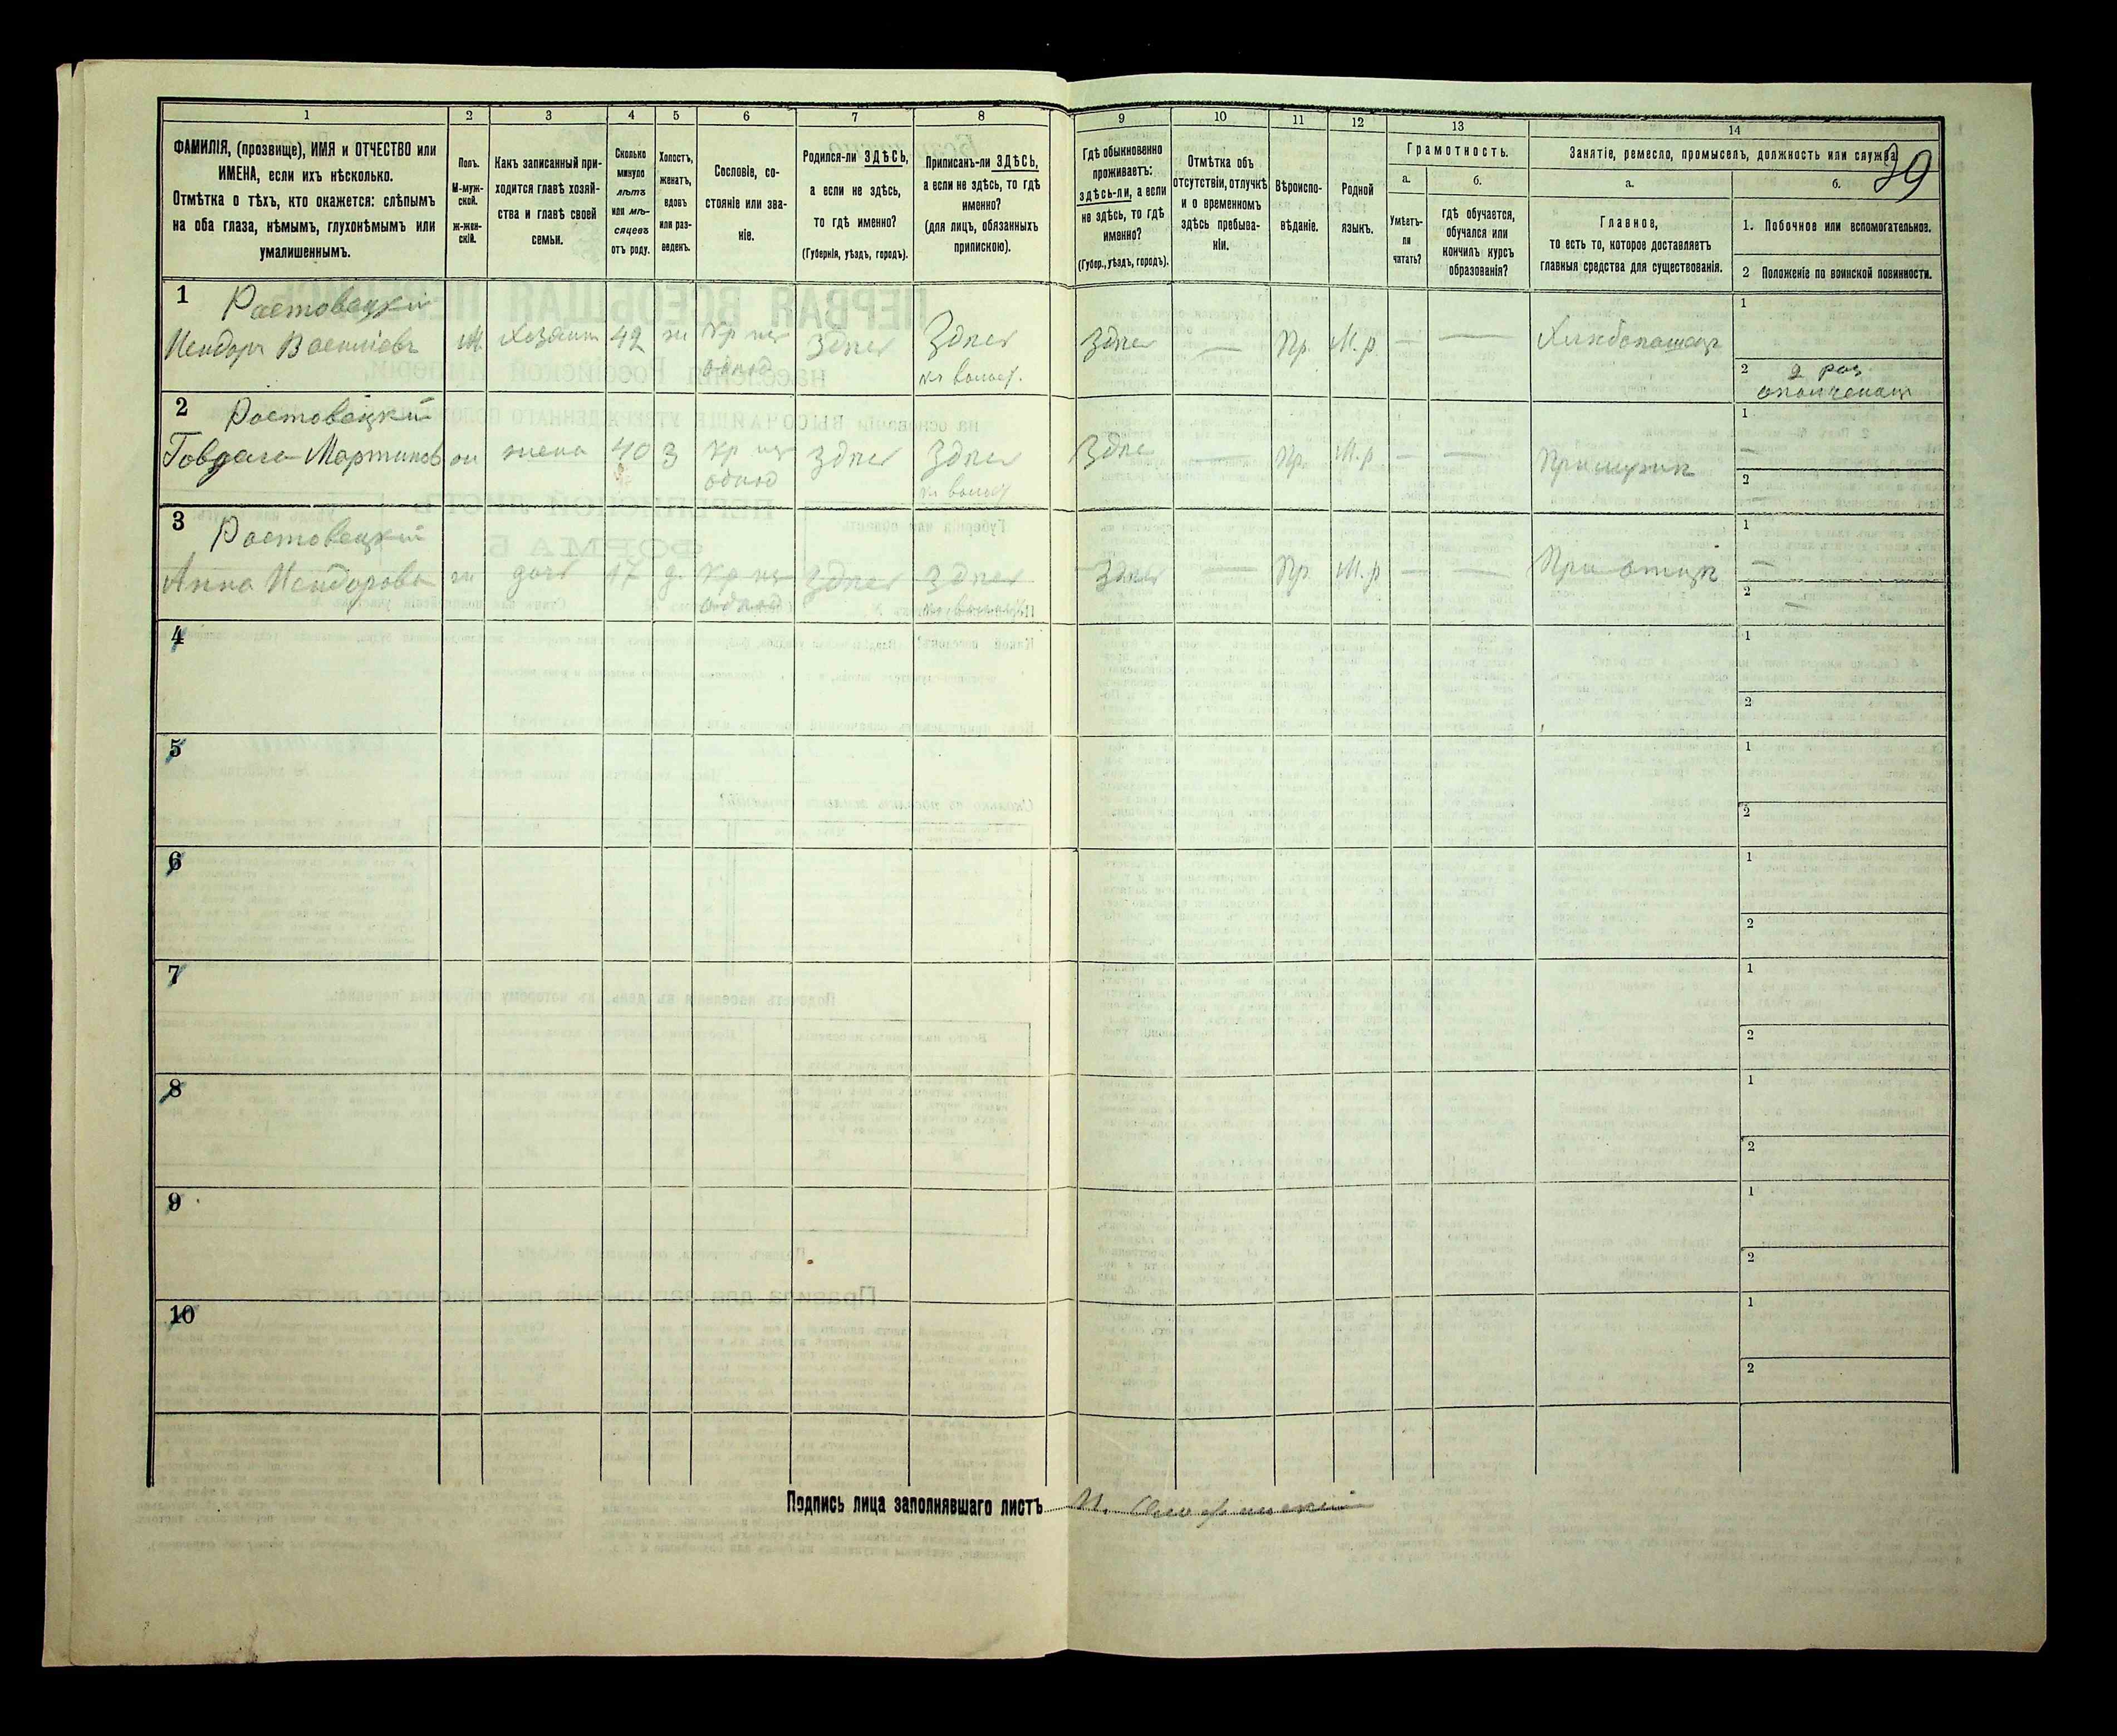 39
1 2 3 4 5 6 7 8 9 10 11 12 13 14
ФАМИЛІЯ, (прозвище), ИМЯ и ОТЧЕСТВО или
ИМЕНА, если ихъ нѣсколько.
Отмѣтка о тѣхъ, кто окажется: слѣпымъ
на оба глаза, нѣмымъ, глухонѣмымъ или
умалишеннымъ.
Полъ.
М-муж-
ской.
ж-жен-
скій.
Какъ записанный при-
ходится главѣ хозяй-
ства и главѣ своей
семьи.
Сколько
минуло
лѣтъ
или мѣ-
сяцевъ
отъ роду.
Холостъ,
женатъ,
вдовъ
или раз-
веденъ.
Сословіе, со-
стояніе или зва-
ніе.
Родился-ли ЗДѢСЬ,
а если не здѣсь,
то гдѣ именно?
(Губернія, уѣздъ, городъ).
Приписанъ-ли ЗДѢСЬ,
а если не здѣсь, то гдѣ
именно?
(для лицъ, обязанныхъ
припискою).
Гдѣ обыкновенно
проживаетъ:
здѣсь-ли, а если
не здѣсь, то гдѣ
именно?
(Губер., уѣздъ, городъ).
Отмѣтка объ
отсутствіи, отлучкѣ
и о временномъ
здѣсь пребыва-
ніи.
Вѣроиспо-
вѣданіе.
Родной
языкъ.
Грамотность.
а.
Умѣетъ-
ли
читать?
б.
гдѣ обучается,
обучался или
кончилъ курсъ
образованія?
Занятіе, ремесло, промыселъ, должность или служба.
а.
Главное,
то есть то, которое доставляетъ
главныя средства для существованія.
б.
1. Побочное или вспомогательное.
2 Положеніе по воинской повинности.
1 Ростовецкій
Исидоръ Василіевъ М. хозяинъ 42 ж Здпсь Здпсь Здпсь — Пр. М.р — — Хлпбопашецъ
1
2 2 раз.
2 Ростовецкий
Мартинов жена 40 З Здпсь Здпсь Здпсь — Пр. М.р — — При мужп
1 —
2 —
3 Ростовецкий
Анна Исидорова ж доч 17 д. Здпсь Здпсь Здпсь — Пр. М.р — — При отцп
1 —
2 —
4 1
2
5 1
2
6 1
2
7 1
2
8 1
2
9 1
2
10 1
2
Подпись лица заполнявшаго листъ